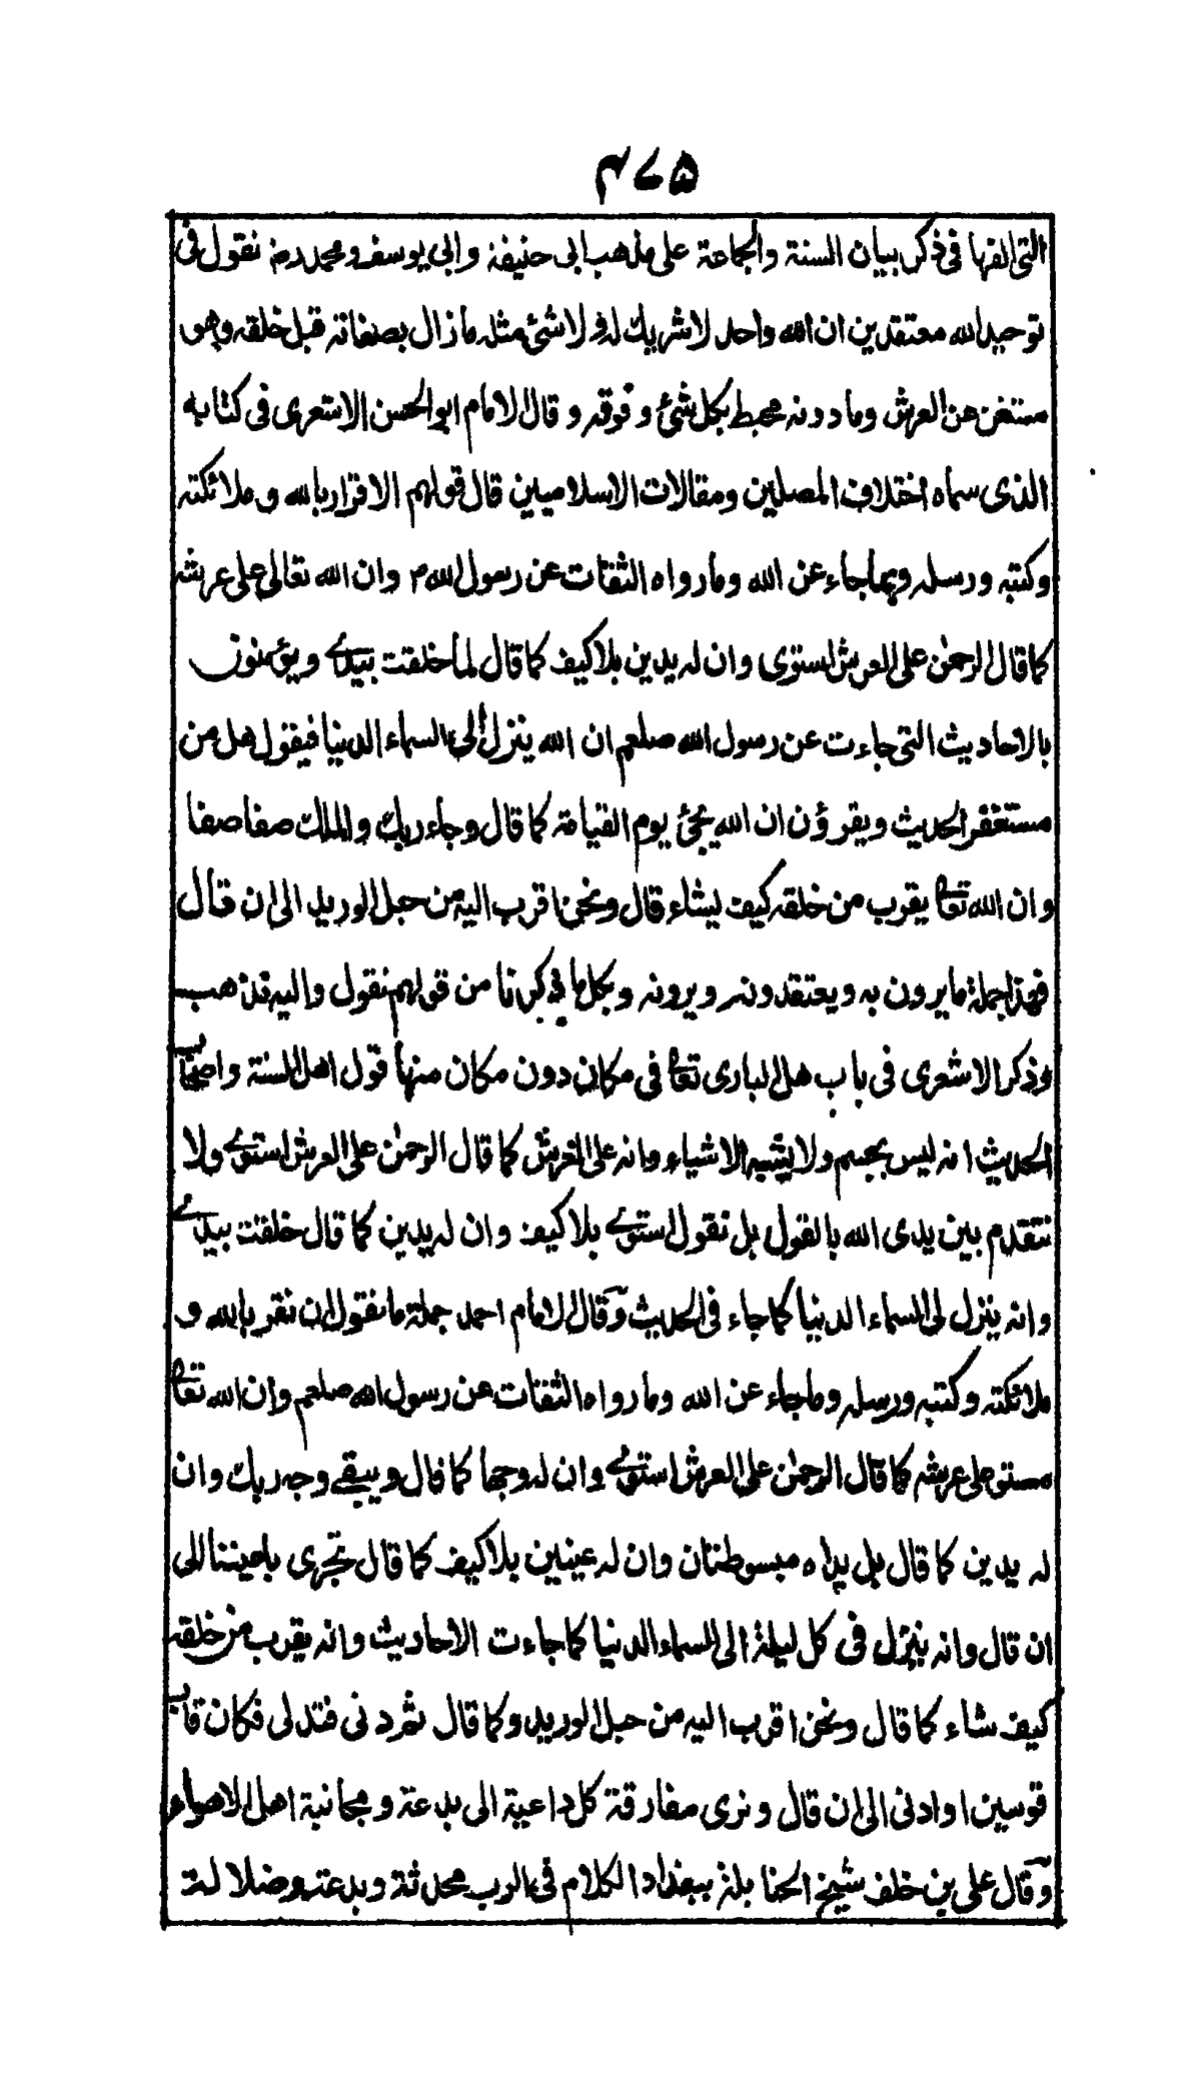 ۴۷۵
التی الفها فی ذکر بیان السنة والجماعة علی مذهب ابی حنیفة وابی یوسف ومحمد رض نقول فی
توحید الله معتقدین ان الله واحد لا شریك له ولا شئ مثله ما زال بصفاته قبل خلقه وهو
مستغن عن العرش وما دونه محیط بکل شئ وفوقه وقال الامام ابو الحسن الاشعری فی کتابه
الذی سماه اختلاف المصلین ومقالات الاسلامیین قال قولهم الاقرار بالله وملائکته
وکتبه ورسله وبما جاء عن الله وما رواه الثقات عن رسول الله م وان الله تعالی علی عرشه
کما قال الرحمٰن علی العرش استوی وان له یدین بلا کیف کما قال لما خلقت بیدے ویؤمنون
بالاحادیث التی جاءت عن رسول الله صلعم ان الله ینزل الی السماء الدنیا فیقول هل من
مستغفر الحدیث ویقرؤن ان الله یجئ یوم القیامة کما قال وجاء ربك والملك صفا صفا
وان الله تعا یقرب من خلقه کیف یشاء قال ونحن اقرب الیه من حبل الورید الی ان قال
فهذا جملة ما یرون به ویعتقدونه ویرونه وبکل ما ذکرنا من قولهم نقول والیه نذهب
وذکر الاشعری فی باب هل الباری تعا فی مکان دون مکان منها قول اهل السنة واصحاب
الحدیث انه لیس بجسم ولا یشبه الاشیاء وانه علی العرش کما قال الرحمٰن علی العرش استوے ولا
نتقدم بین یدی الله بالقول بل نقول استوے بلا کیف وان له یدین کما قال خلقت بیدے
وانه ینزل الی السماء الدنیا کما جاء فی الحدیث وقال الامام احمد جملة ما نقول ان نقر بالله و
ملائکته وکتبه ورسله وما جاء عن الله وما رواه الثقات عن رسول الله صلعم وان الله تعا
مستو علی عرشه کما قال الرحمٰن علی العرش استوے وان له وجها کما قال ویبقے وجه ربك وان
له یدین کما قال بل یداه مبسوطتان وان له عینین بلا کیف کما قال تجری باعیننا الی
ان قال وانه ینزل فی کل لیلة الی السماء الدنیا کما جاءت الاحادیث وانه یقرب من خلقه
کیف شاء کما قال ونحن اقرب الیه من حبل الورید وکما قال ثم دنی فتدلی فکان قاب
قوسین او ادنی الی ان قال ونری مفارقة کل داعیة الی بدعة ومجانبة اهل الاهواء
وقال علی بن خلف شیخ الحنابلة ببغداد الکلام فی الرب محدثة وبدعة وضلالة